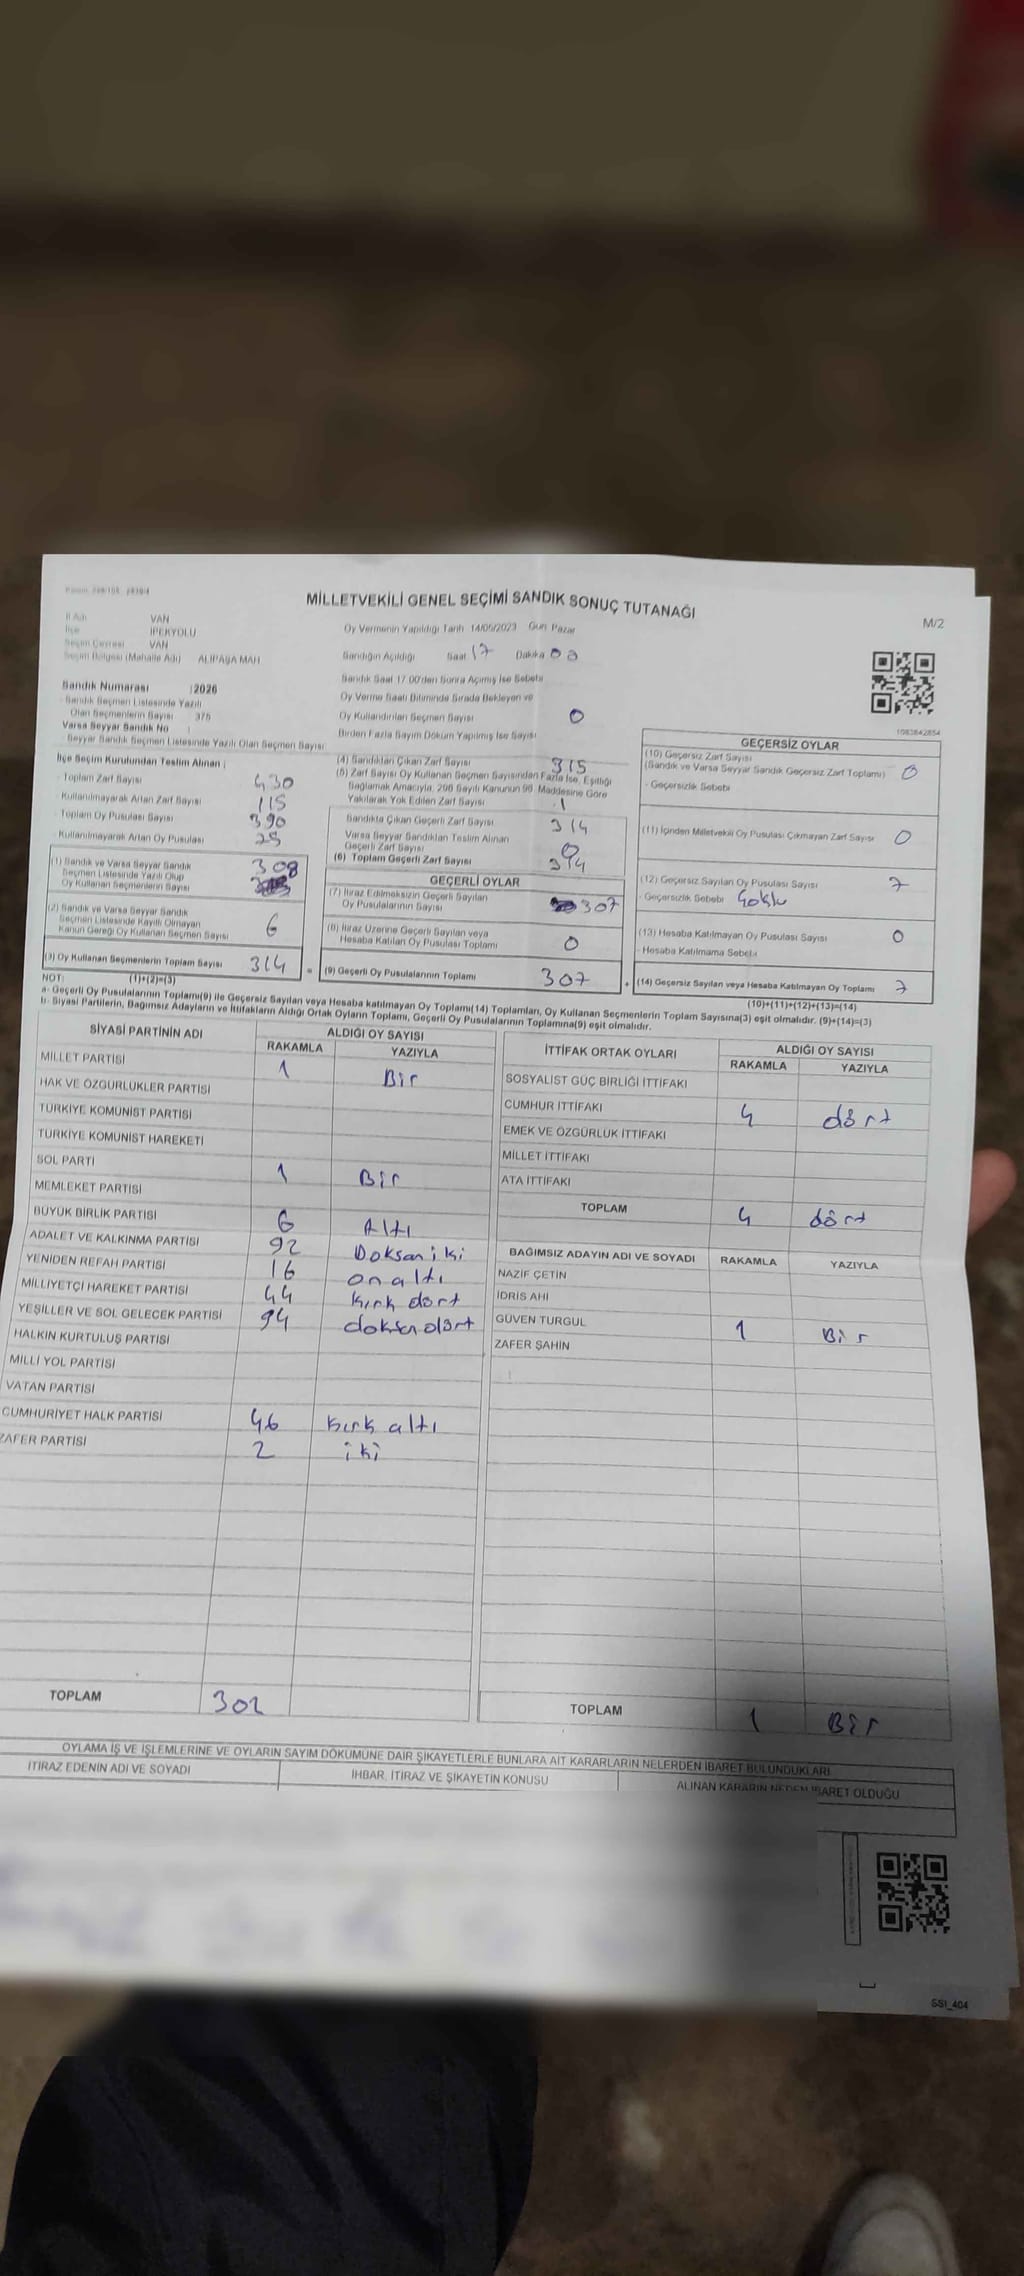 MİLLETVEKİLİ GENEL SEÇİMİ SANDIK SONUÇ TUTANAĞI
M/2
İl Adı VAN
İlçe İPEKYOLU
Seçim Çevresi VAN
Seçim Bölgesi (Mahalle Adı) ALİPAŞA MAH
Oy Vermenin Yapıldığı Tarih 14/05/2023 Gün Pazar
Sandığın Açıldığı Saat 17 Dakika 00
Sandık Saat 17.00'den Sonra Açılmış İse Sebebi
Oy Verme Saati Bitiminde Sırada Bekleyen ve
Oy Kullandırılan Seçmen Sayısı 0
Birden Fazla Sayım Döküm Yapılmış İse Sayısı
1083842854
Sandık Numarası : 2026
- Sandık Seçmen Listesinde Yazılı
Olan Seçmenlerin Sayısı 375
Varsa Seyyar Sandık No :
- Seyyar Sandık Seçmen Listesinde Yazılı Olan Seçmen Sayısı
İlçe Seçim Kurulundan Teslim Alınan ;
- Toplam Zarf Sayısı 430
- Kullanılmayarak Artan Zarf Sayısı 115
- Toplam Oy Pusulası Sayısı 390
- Kullanılmayarak Artan Oy Pusulası
(1) Sandık ve Varsa Seyyar Sandık
Seçmen Listesinde Yazılı Olup
Oy Kullanan Seçmenlerin Sayısı 308
(2) Sandık ve Varsa Seyyar Sandık
Seçmen Listesinde Kayıtlı Olmayan
Kanun Gereği Oy Kullanan Seçmen Sayısı 6
(3) Oy Kullanan Seçmenlerin Toplam Sayısı 314
(4) Sandıktan Çıkan Zarf Sayısı 315
(5) Zarf Sayısı Oy Kullanan Seçmen Sayısından Fazla İse, Eşitliği
Sağlamak Amacıyla, 298 Sayılı Kanunun 98. Maddesine Göre
Yakılarak Yok Edilen Zarf Sayısı 1
Sandıkta Çıkan Geçerli Zarf Sayısı 314
Varsa Seyyar Sandıktan Teslim Alınan
Geçerli Zarf Sayısı 0
(6) Toplam Geçerli Zarf Sayısı 314
GEÇERLİ OYLAR
(7) İtiraz Edilmeksizin Geçerli Sayılan
Oy Pusulalarının Sayısı 307
(8) İtiraz Üzerine Geçerli Sayılan veya
Hesaba Katılan Oy Pusulası Toplamı 0
= (9) Geçerli Oy Pusulalarının Toplamı 307
GEÇERSİZ OYLAR
(10) Geçersiz Zarf Sayısı
(Sandık ve Varsa Seyyar Sandık Geçersiz Zarf Toplamı) 0
- Geçersizlik Sebebi
(11) İçinden Milletvekili Oy Pusulası Çıkmayan Zarf Sayısı 0
(12) Geçersiz Sayılan Oy Pusulası Sayısı 7
- Geçersizlik Sebebi Çoklu
(13) Hesaba Katılmayan Oy Pusulası Sayısı 0
- Hesaba Katılmama Sebebi
+ (14) Geçersiz Sayılan veya Hesaba Katılmayan Oy Toplamı 7
NOT: (1)+(2)=(3)
(10)+(11)+(12)+(13)=(14)
a- Geçerli Oy Pusulalarının Toplamı(9) ile Geçersiz Sayılan veya Hesaba katılmayan Oy Toplamı(14) Toplamları, Oy Kullanan Seçmenlerin Toplam Sayısına(3) eşit olmalıdır. (9)+(14)=(3)
b- Siyasi Partilerin, Bağımsız Adayların ve İttifakların Aldığı Ortak Oyların Toplamı, Geçerli Oy Pusulalarının Toplamına(9) eşit olmalıdır.
SİYASİ PARTİNİN ADI ALDIĞI OY SAYISI
RAKAMLA YAZIYLA
MİLLET PARTİSİ 1 Bir
HAK VE ÖZGÜRLÜKLER PARTİSİ
TÜRKİYE KOMÜNİST PARTİSİ
TÜRKİYE KOMÜNİST HAREKETİ
SOL PARTİ 1 Bir
MEMLEKET PARTİSİ
BÜYÜK BİRLİK PARTİSİ 6 Altı
ADALET VE KALKINMA PARTİSİ 92 Doksan iki
YENİDEN REFAH PARTİSİ 16 on altı
MİLLİYETÇİ HAREKET PARTİSİ 44 kırk dört
YEŞİLLER VE SOL GELECEK PARTİSİ 94 doksa dört
HALKIN KURTULUŞ PARTİSİ
MİLLİ YOL PARTİSİ
VATAN PARTİSİ
CUMHURİYET HALK PARTİSİ 46 kırk altı
ZAFER PARTİSİ 2 iki
TOPLAM 302
İTTİFAK ORTAK OYLARI ALDIĞI OY SAYISI
RAKAMLA YAZIYLA
SOSYALİST GÜÇ BİRLİĞİ İTTİFAKI
CUMHUR İTTİFAKI 4 dört
EMEK VE ÖZGÜRLÜK İTTİFAKI
MİLLET İTTİFAKI
ATA İTTİFAKI
TOPLAM 4 dört
BAĞIMSIZ ADAYIN ADI VE SOYADI RAKAMLA YAZIYLA
NAZİF ÇETİN
İDRİS AHİ
GÜVEN TURGUL 1 Bir
ZAFER ŞAHİN
TOPLAM 1 Bir
OYLAMA İŞ VE İŞLEMLERİNE VE OYLARIN SAYIM DÖKÜMÜNE DAİR ŞİKAYETLERLE BUNLARA AİT KARARLARIN NELERDEN İBARET BULUNDUKLARI
İTİRAZ EDENİN ADI VE SOYADI İHBAR, İTİRAZ VE ŞİKAYETİN KONUSU ALINAN KARARIN NEDEN İBARET OLDUĞU
SSI_404